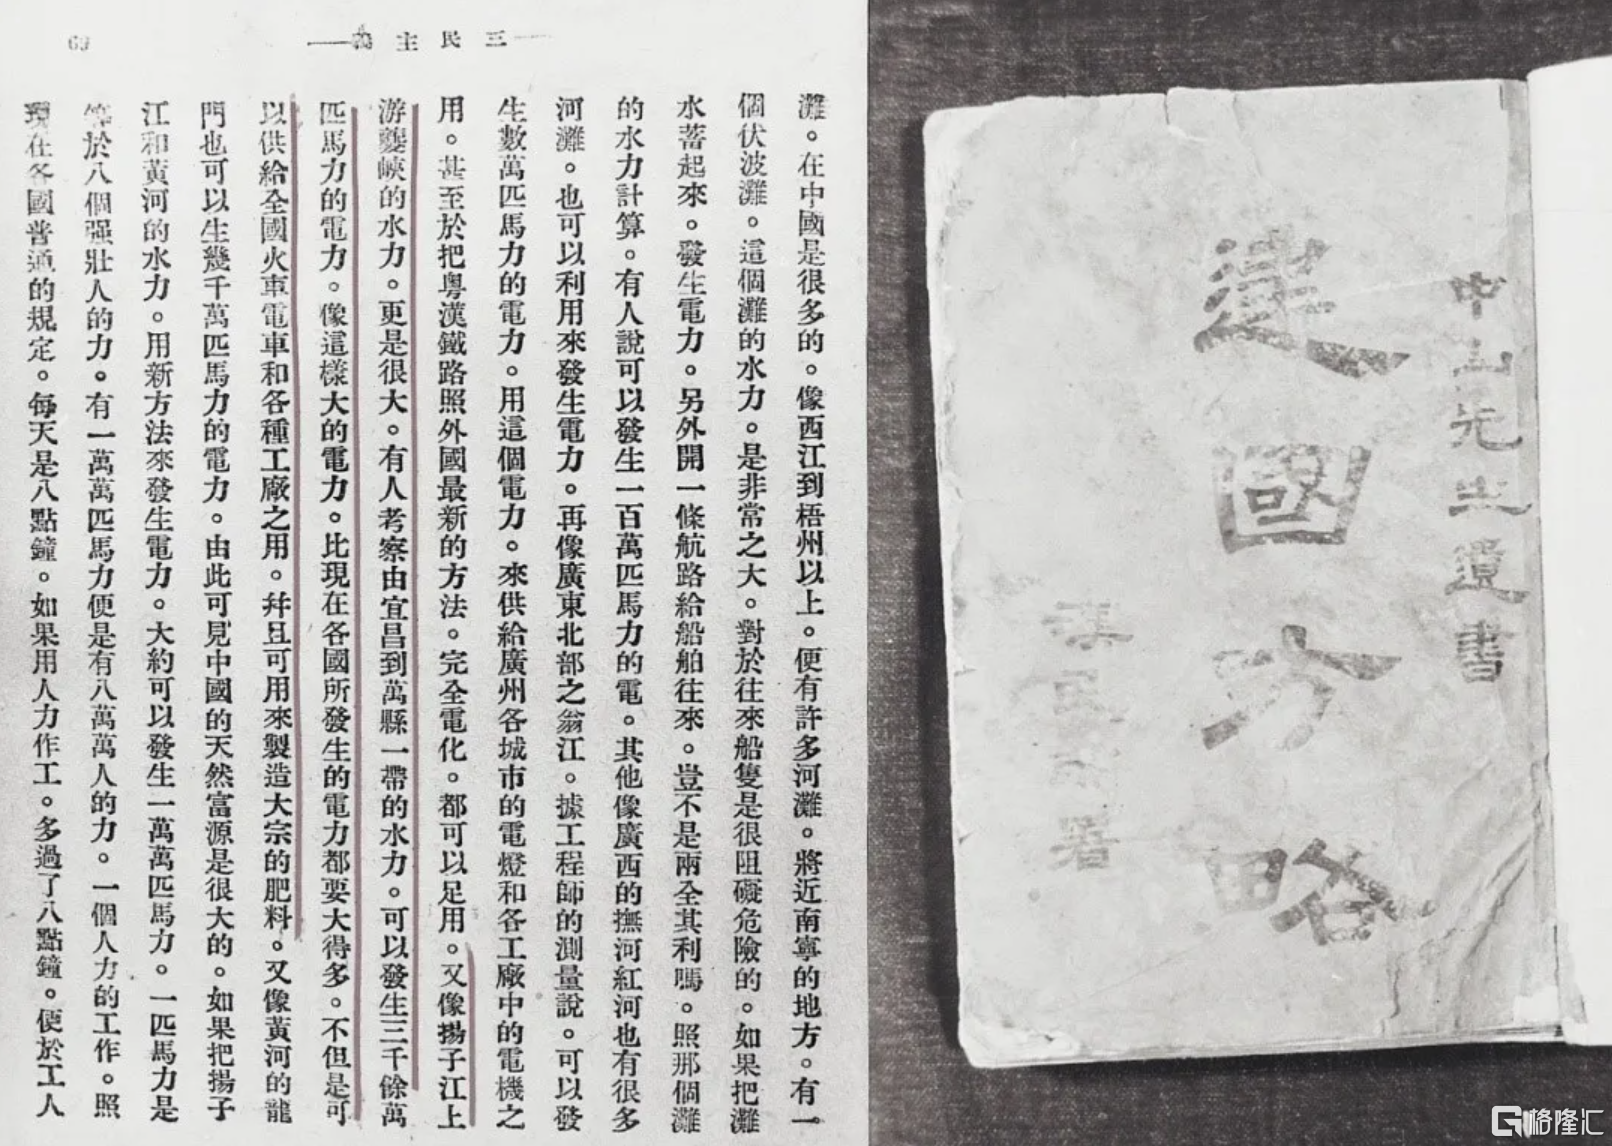 三民主義
69
灘。在中國是很多的。像西江到梧州以上。便有許多河灘。將近南寧的地方。有一
個伏波灘。這個灘的水力。是非常之大。對於往來船隻是很阻礙危險的。如果把灘
水蓄起來。發生電力。另外開一條航路給船舶往來。豈不是兩全其利嗎。照那個灘
的水力計算。有人說可以發生一百萬匹馬力的電。其他像廣西的撫河紅河也有很多
河灘。也可以利用來發生電力。再像廣東北部之翁江。據工程師的測量說。可以發
生數萬匹馬力的電力。用這個電力。來供給廣州各城市的電燈和各工廠中的電機之
用。甚至於把粵漢鐵路照外國最新的方法。完全電化。都可以足用。又像揚子江上
游夔峽的水力。更是很大。有人考察由宜昌到萬縣一帶的水力。可以發生三千餘萬
匹馬力的電力。像這樣大的電力。比現在各國所發生的電力都要大得多。不但是可
以供給全國火車電車和各種工廠之用。幷且可用來製造大宗的肥料。又像黃河的龍
門也可以生幾千萬匹馬力的電力。由此可見中國的天然富源是很大的。如果把揚子
江和黃河的水力。用新方法來發生電力。大約可以發生一萬萬匹馬力。一匹馬力是
等於八個强壯人的力。有一萬萬匹馬力便是有八萬萬人的力。一個人力的工作。照
現在各國普通的規定。每天是八點鐘。如果用人力作工。多過了八點鐘。便於工人
中山先生遺書
建國方略
漢民署
格隆汇